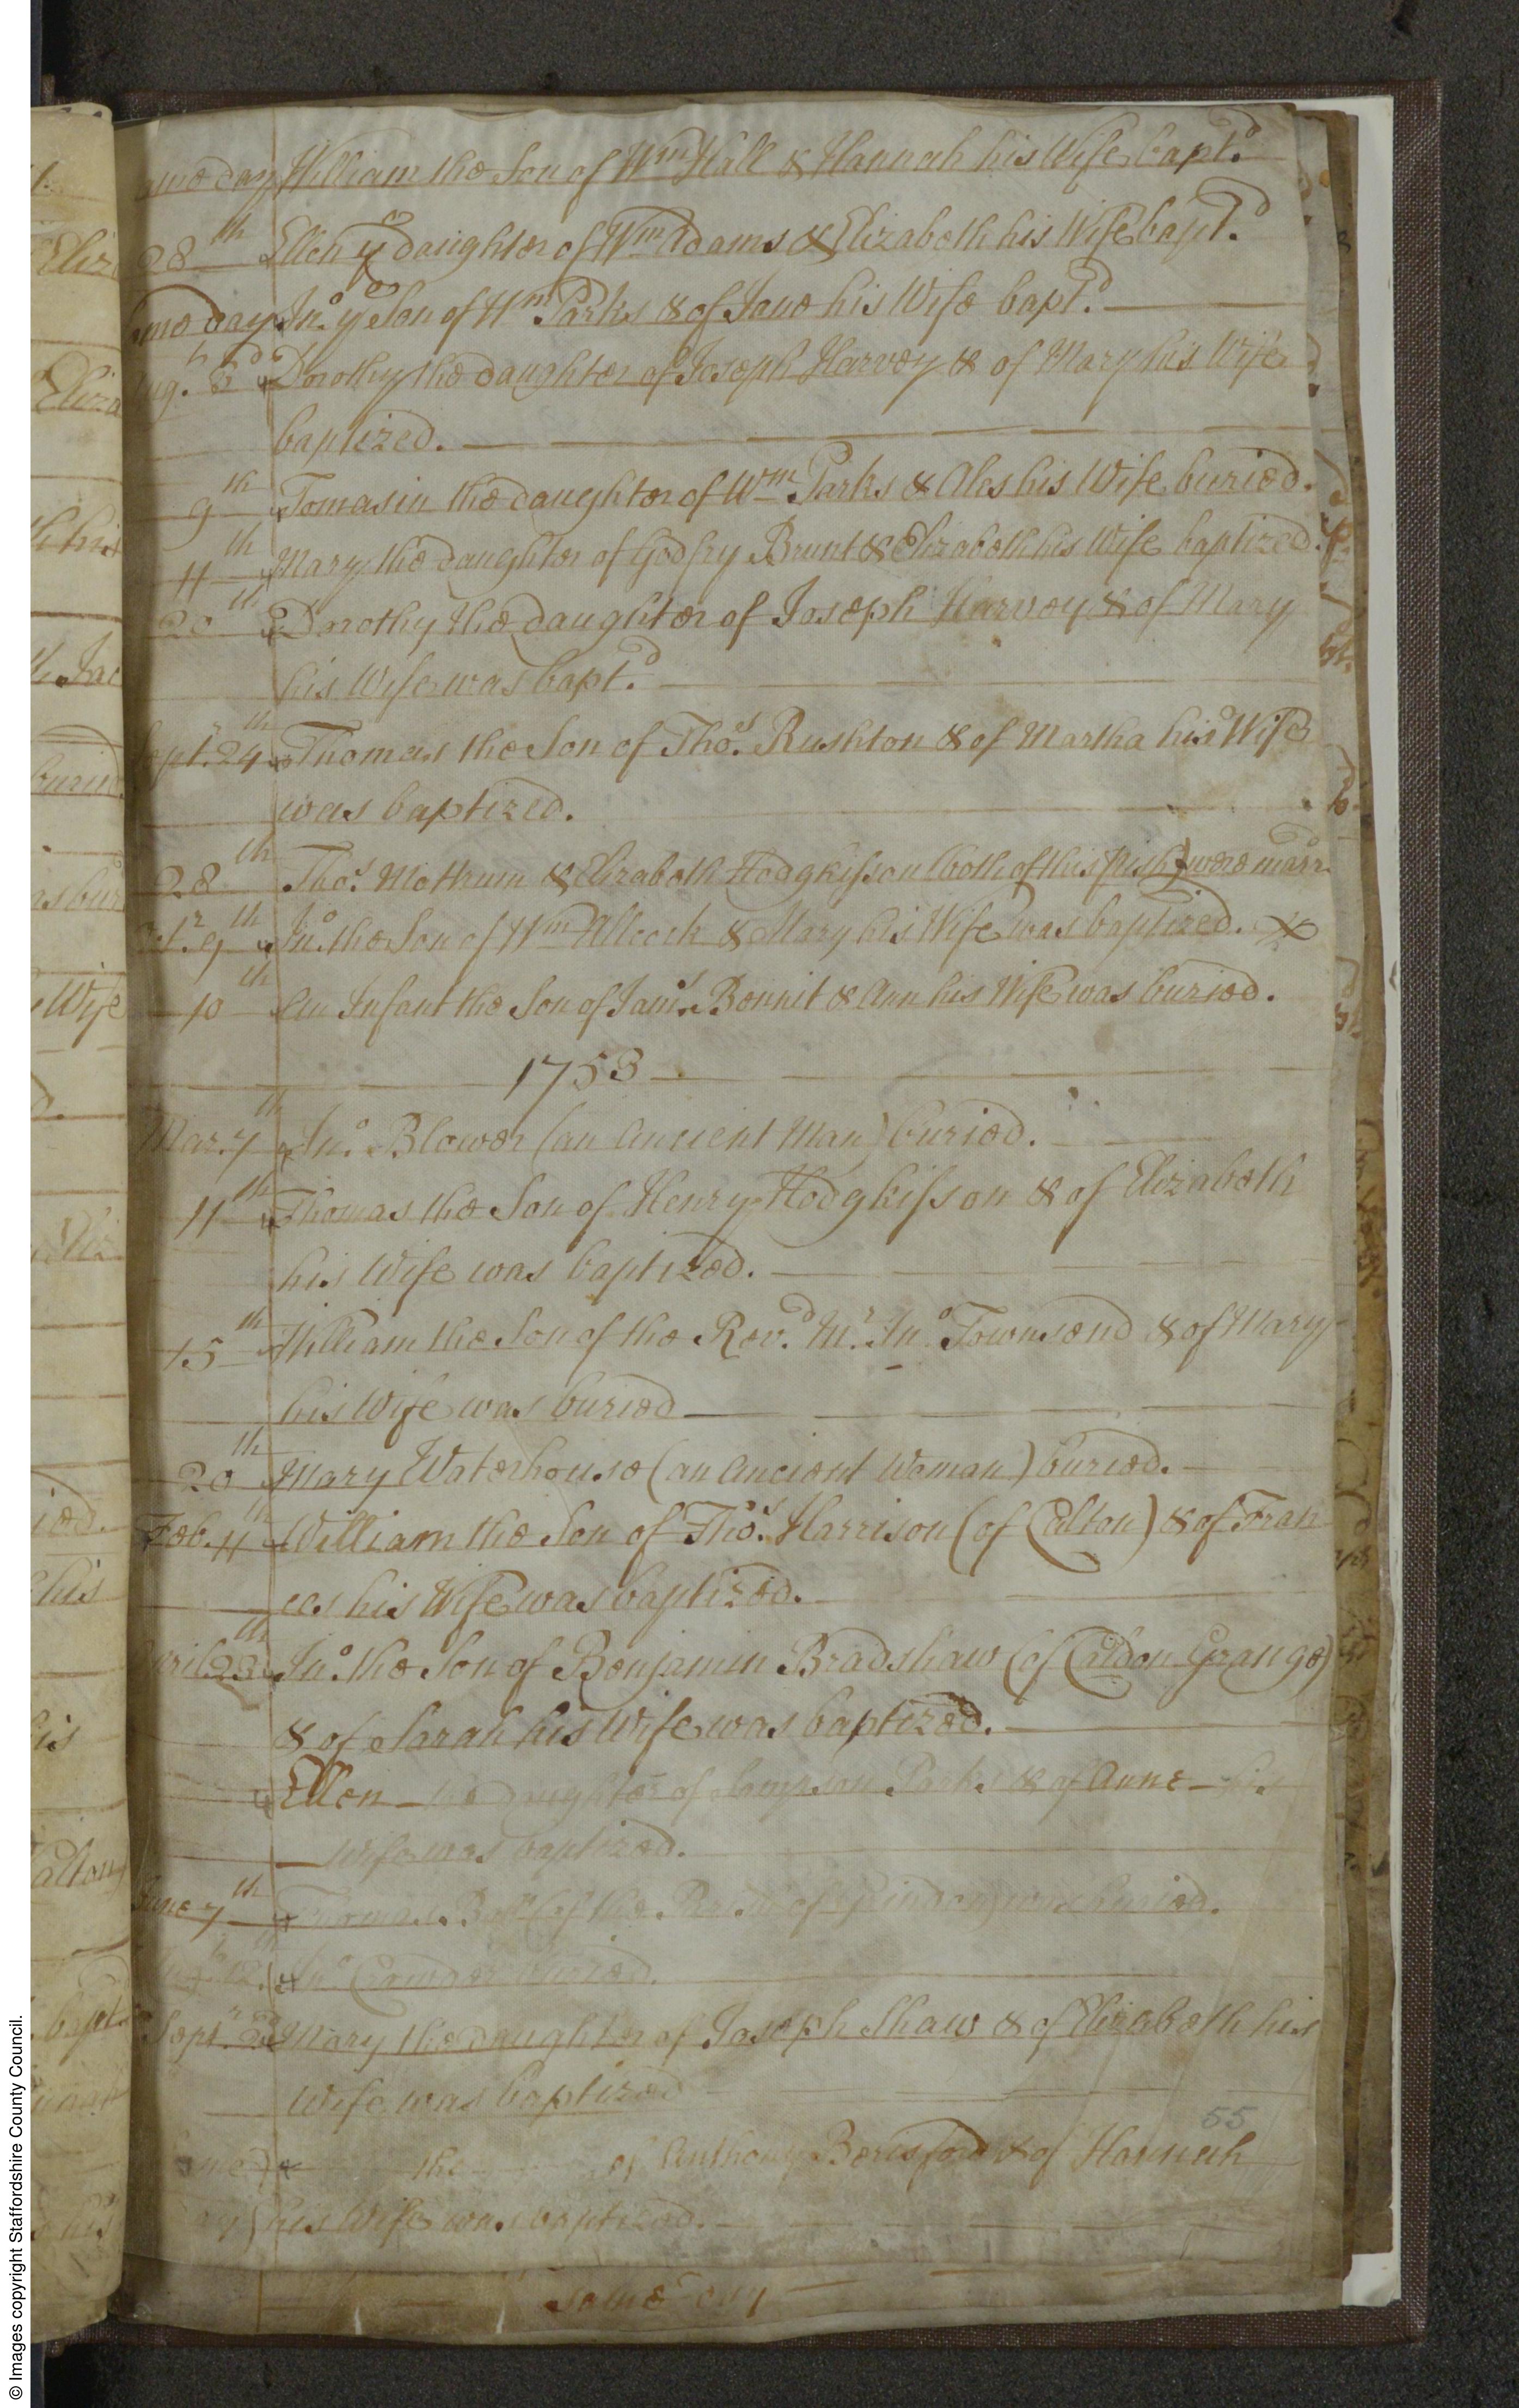 ame day William the Son of Wm Hall & Hannah his Wife bapt.d
28th Ellen ye daughter of Wm Adams & Elizabeth his Wife bapt.d
ame day Jno. ye Son of Wm Parks & of Jane his Wife bapt.d
ug. Dorothy the daughter of Joseph Harvey & of Mary his Wife
baptized.
9th Tomasin the daughter of Wm Parks & Ales his Wife buried.
11th Mary the daughter of Godfry Brunt & Elizabeth his Wife baptized.
20th Dorothy the daughter of Joseph Harvey & of Mary
his Wife was bapt.d
Sept.r 24th Thomas the Son of Tho.s Rushton & of Martha his Wife
was baptized.
28th Tho.s & Elizabeth Hodgkisson (both of this Pish) were marr
Oct.r 9th Jno. the Son of Wm Allcock & Mary his Wife was baptized.
10th An Infant the Son of Jam.s Bennit & Ann his Wife was buried.
1753
Mar. 7th Jno. Blower (an Ancient Man) buried.
11th Thomas the Son of Henry Hodgkisson & of Elizabeth
his Wife was baptized.
15th William the Son of the Rev.d Mr. Jno Townsend & of Mary
his Wife was buried
20th Mary Waterhouse (an Ancient Woman) buried.
Feb. 11th William the Son of Tho.s Harrison (of Calton) & of Fran
ces his Wife was baptized.
pril 23th Jno. the Son of Benjamin Bradshaw (of Caldon Grange)
& of Sarah his Wife was baptized.
Ellen the daughter of Sampson Parks & of Anne his
Wife was baptized.
June 7th Thomas of the of was buried.
12th Jno. buried.
Sept.r 2d Mary the daughter of Joseph Shaw & of Elizabeth his
Wife was baptized
55
the of Anthony Berisford & of Hannah
his Wife was baptized.
Same day
© Images copyright Staffordshire County Council.